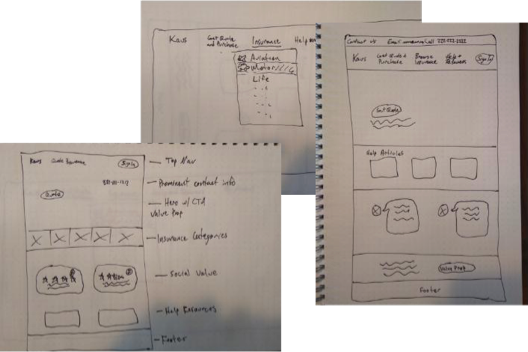 Kaus
Get Quote
and Purchase
Insurance
Help
Aviation
Motor
Life
Contact us
Call
Kaus
Get Quote &
Purchase
Browse
Insurance
Help &
Sign In
Get Quote
Help Articles
Footer
Kaus
Insurance
Sign In
Quote
Top Nav
Prominent contact info
Hero w/ CTA
Value Prop
Insurance Categories
Social Value
Help Resources
Footer